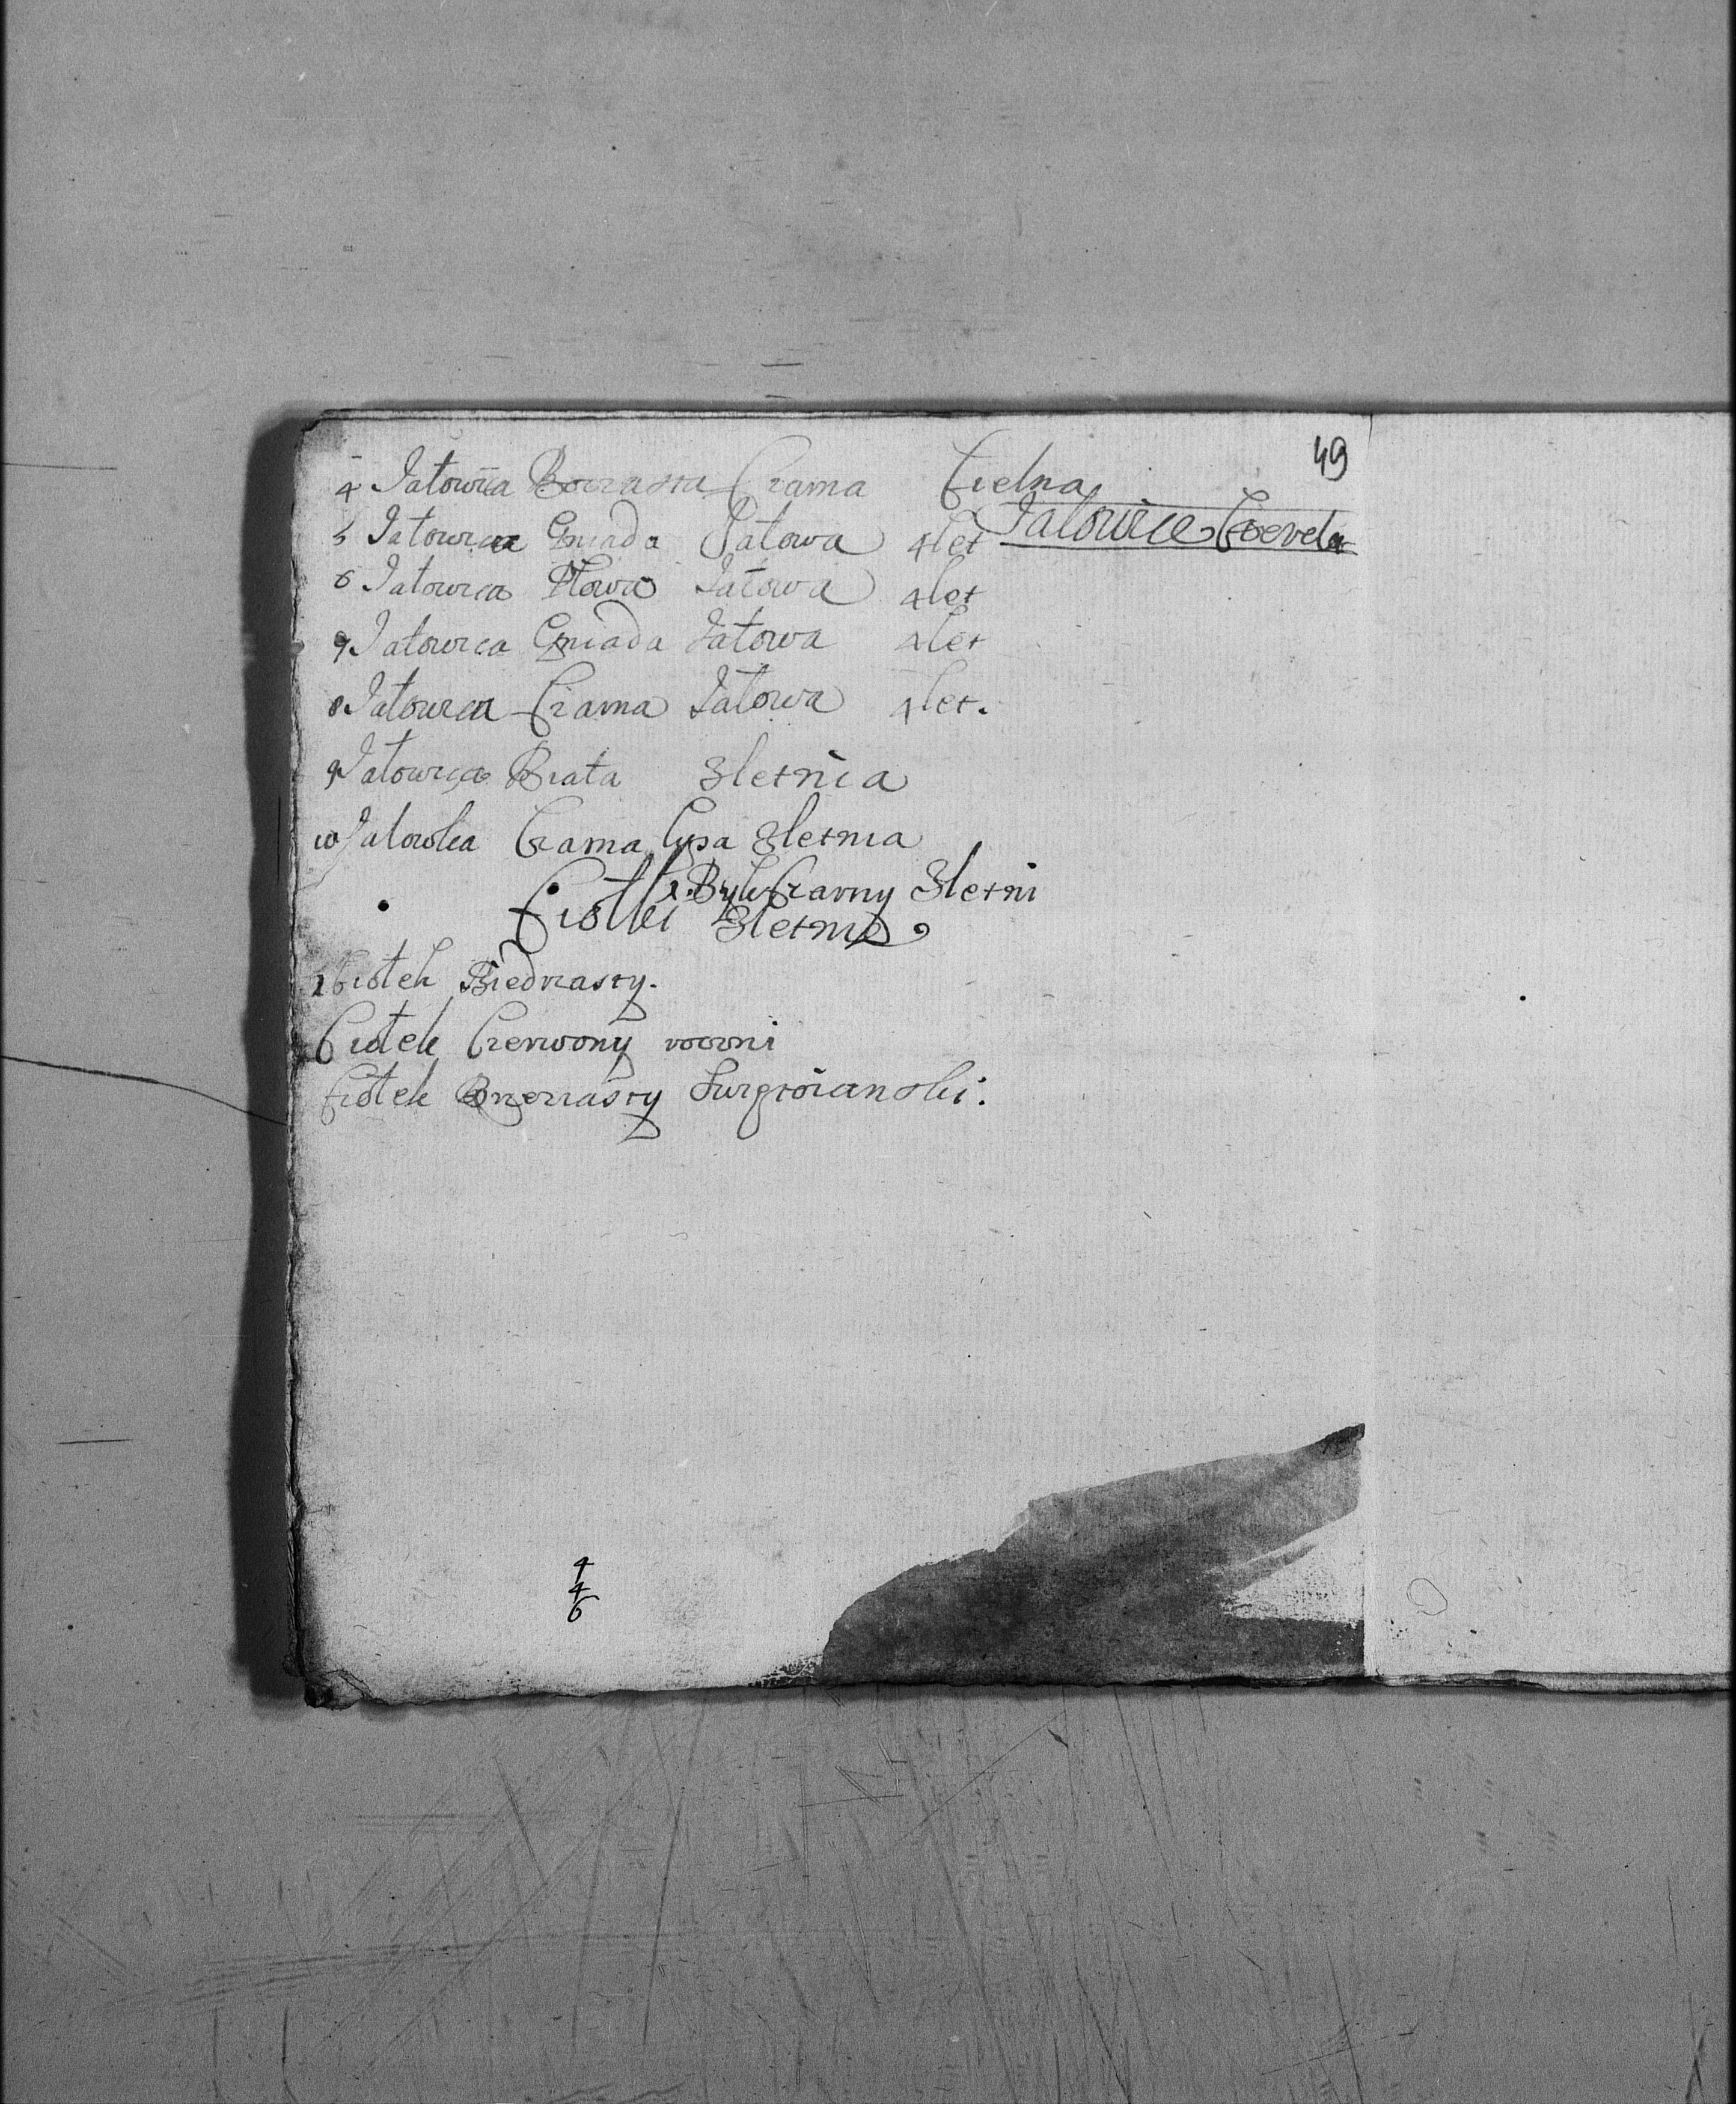 49
4 Jałowica Boczasta Czarna Cielna
5 Jałowica Gniada Jałowa 4 let Jałowice
6 Jałowica Płowa Jałowa 4 let
7 Jałowica Gniada Jałowa 4 let
8 Jałowica Czarna Jałowa 4 let.
9 Jałowica Biała 3letnia
10 Jalowka Czarna Łysa 3letnia
1. Byk Czarny 3letni
Ciołki 3letnie
1 Ciołek Biedrasty.
Ciołek Czerwony
Ciołek
4
4
6